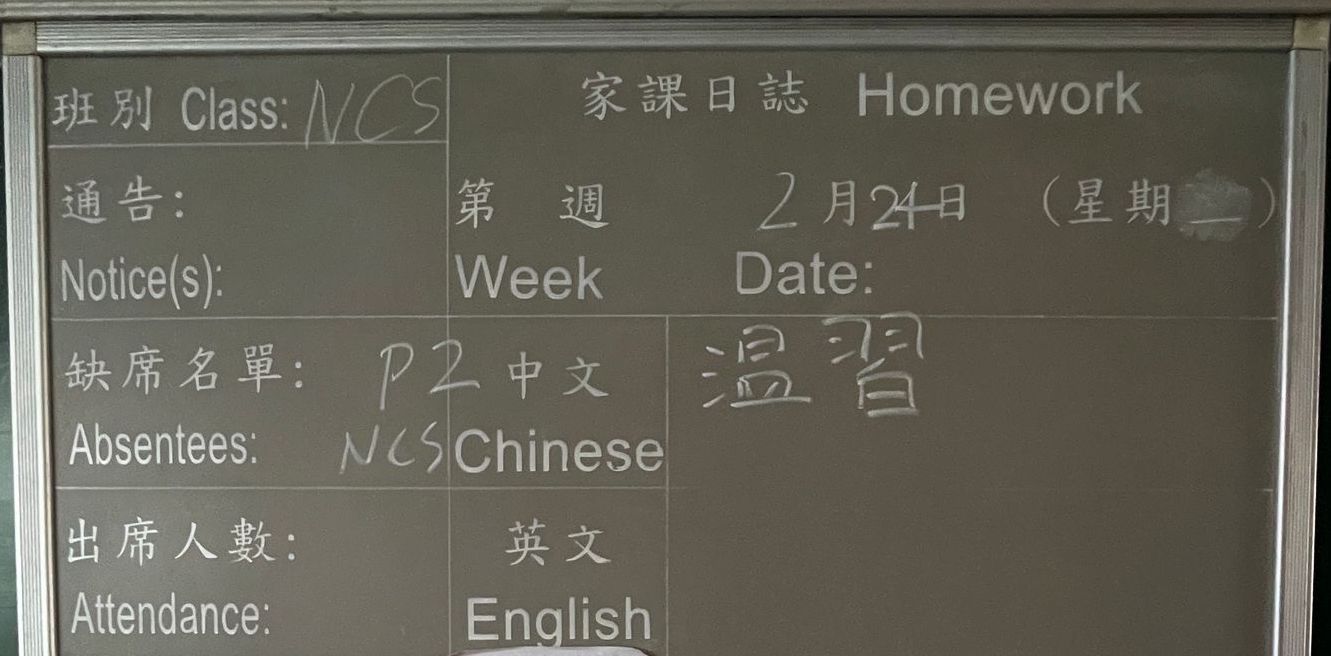 班別 Class: NCS
家課日誌 Homework
通告:
第 週 2月24日 (星期一)
Notice(s):
Week Date:
缺席名單: P2 中文 温習
Absentees: NCS Chinese
出席人數: 英文
Attendance: English